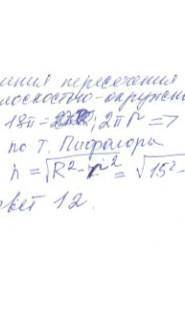 иния пересечения
лоскостью-окружн
18π = 2πr =>
по т. Пифагора
h = √R²-r² = √15²-
твет 12.